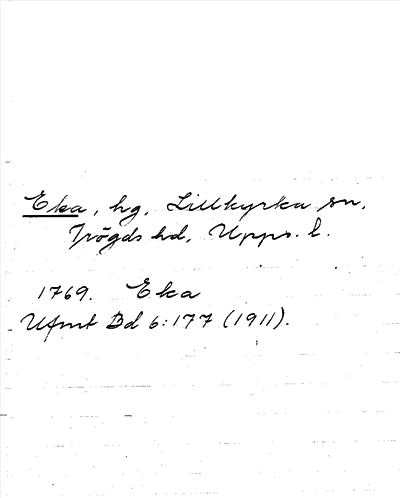 Eka, hg, Lillkyrka sn,
Trögds hd, Upps. l.
1769. Eka
Ufmt Bd 6:177 (1911).